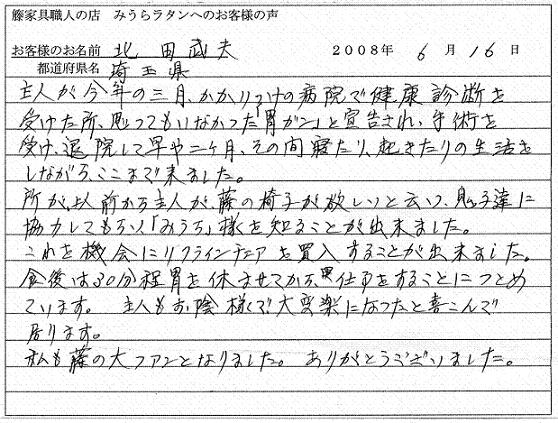 籐家具職人の店 みうらラタンへのお客様の声
お客様のお名前 北田武夫 2008年 6月 16日
都道府県名 埼玉県
主人が今年の三月、かかりつけの病院で健康診断を
受けた所、思ってもいなかった「胃ガン」と宣告され、手術を
受け、退院して早や二ヶ月、その間寝たり、起きたりの生活を
しながら、ここまで来ました。
所が、以前から主人が、藤の椅子が欲しいと云い、息子達に
協力してもらい「みうら」様を知ることが出来ました。
これを機会にリクラインチェアを買入することが出来ました。
食後は30分程胃を休ませてから、仕事をすることにつとめ
ています。 主人もお陰様で大変楽になったと喜こんで
居ります。
私も藤の大ファンとなりました。 ありがとうございました。